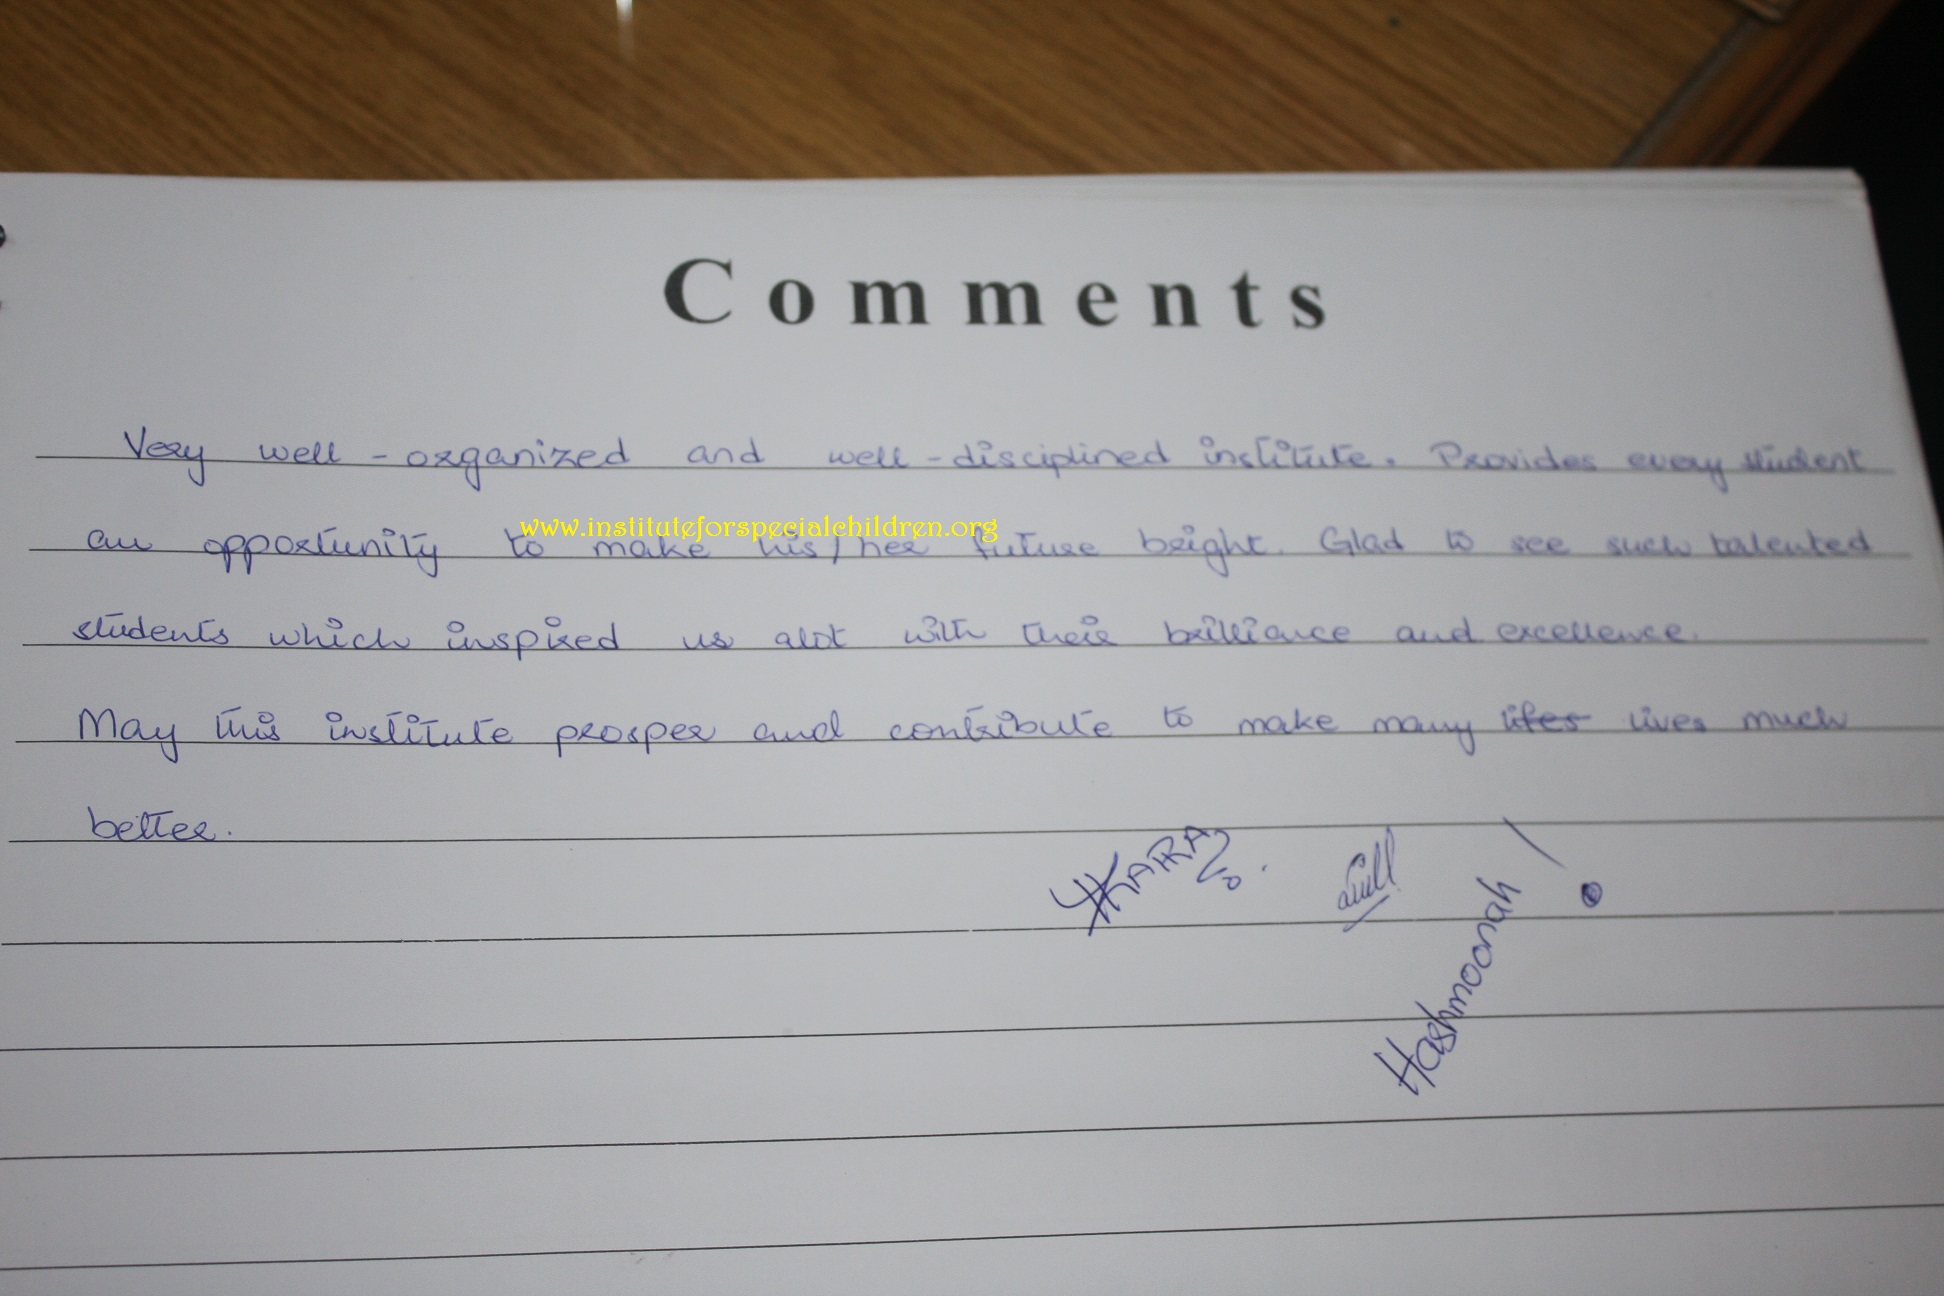 Comments
Very well-organized and well-disciplined institute. Provides every student
www.instituteforspecialchildren.org
an opportunity to make his/her future bright. Glad to see such talented
students which inspired us alot with their brilliance and excellence.
May this institute prosper and contribute to make many lifes lives much
better.
Hashmoonah!